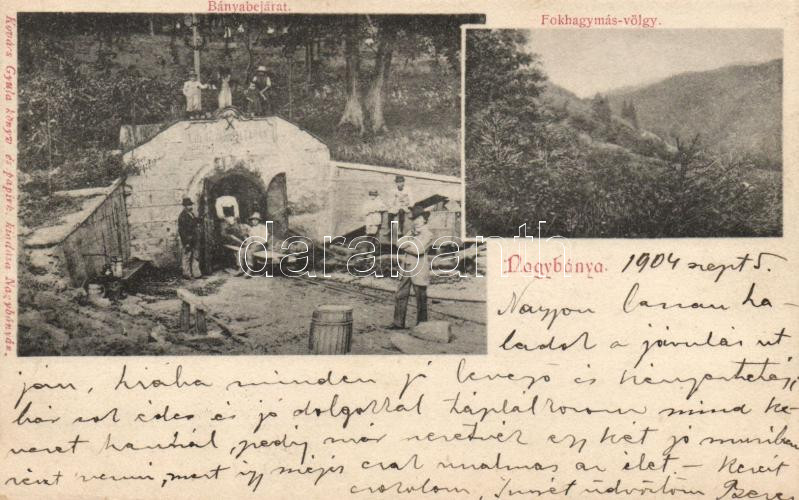 Bányabejárat.
Fokhagymás-völgy.
Kovács Gyula könyv és papírk. kiadása Nagybányán.
darabanth.com
Nagybánya. 1904 szept 5.
Nagyon lassan ha-
ladok a javulás ut
ján, hiába minden jó levegő és kényeztetés,
bár sok édes és jó dologgal táplálkozom mind ke-
veset használ, pedig már szeretnék egy két jó muriban
részt venni, mert így mégis csak unalmas az élet. –
csókolom, Imrét üdvözlöm